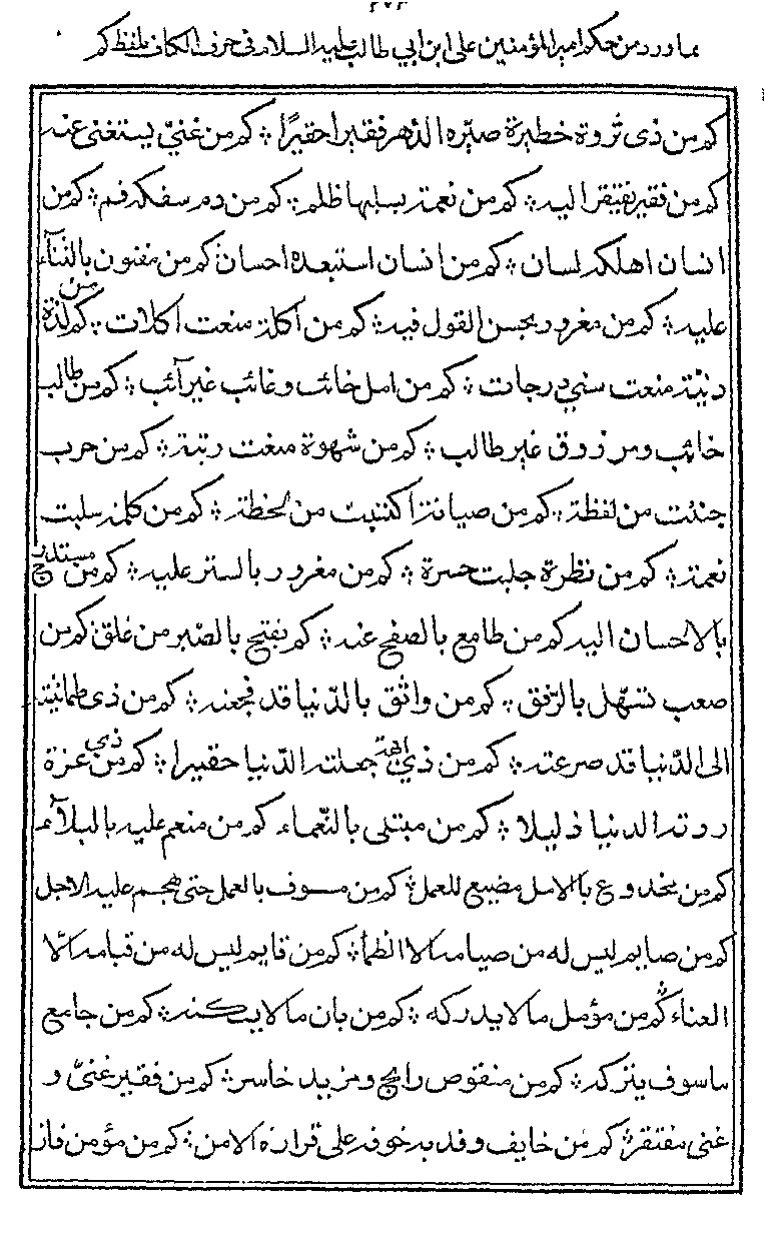 مما ورد من حكم امير المؤمنين على ابن ابي طالب عليه السلام في حرف الكاف بلفظ كم
كم من ذى ثروة خطيرة صيّره الدّهر فقيرا حقيرًا ؛ كم من غنيّ يستغنى عنه
كم من فقير يفتقر اليه ؛ كم من نعمة يسلبها ظلم ؛ كم من دم سفكه فم ؛ كم من
انسان اهلكه لسان ؛ كم من انسان استعبده احسان كم من مفتون بالثناء
عليه ؛ كم من مغرور بحسن القول فيه ؛ كم من اكلة منعت اكلات ؛ كم من لذة
دنيّة منعت سنيّ درجات ؛ كم من امل خائب و غائب غير آئب ؛ كم من طالب
خائب و مرزوق غير طالب ؛ كم من شهوة منعت رتبة ؛ كم من حرب
جنيت من لفظة ؛ كم من صيانة اكتسبت من لحظة ؛ كم من كلمة سلبت
نعمة ؛ كم من نظرة جلبت حسرة ؛ كم من مغرور بالستر عليه ؛ كم من مستدرج
بالاحسان اليه كم من طامع بالصفح عنه ؛ كم يفتح بالصّبر من غلق كم من
صعب تسهّل بالرّفق ؛ كم من واثق بالدّنيا قد فجعته ؛ كم من ذى طمانينة
الى الدّنيا قد صرعته ؛ كم من ذي ابهة جعلته الدّنيا حقيرا ؛ كم من ذي عزة
ردته الدنيا ذليلا ؛ كم من مبتلى بالنّعماء كم من منعم عليه بالبلآء
كم من مخدوع بالامل مضيع للعمل ؛ كم من مسوف بالعمل حتى هجم عليه الاجل
كم من صايم ليس له من صيامه الا الظمأ ؛ كم من قايم ليس له من قيامه الا
العناء كم من مؤمل ما لا يدركه ؛ كم من بان ما لا يسكنه ؛ كم من جامع
ما سوف يتركه ؛ كم من منقوص رابح و مزيد خاسر ؛ كم من فقير غنىّ و
غنى مفتقر ؛ كم من خايف وفد به خوفه على قرارة الامن ؛ كم من مؤمن فاز